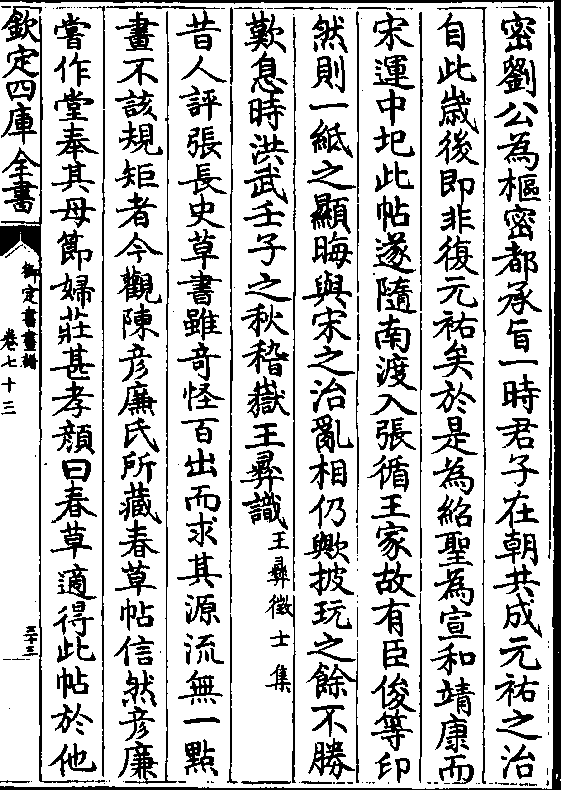 密劉公為樞密都承旨一時君子在朝共成元祐之治
自此歲後即非復元祐矣於是為紹聖為宣和靖康而
宋運中圮此帖遂隨南渡入張循王家故有臣俊等印
然則一紙之顯晦與宋之治亂相仍歟披玩之餘不勝
歎息時洪武壬子之秋嵇嶽王彛識王彛徵士集
昔人評張長史草書雖竒怪百出而求其源流無一點
畫不該規矩者今觀陳彦廉氏所藏春草帖信然彦廉
嘗作堂奉其母節婦莊甚孝顔曰春草適得此帖於他
欽定四庫全書
御定書畫譜
卷七十三
三十三